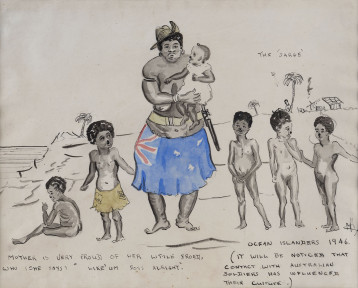 THE "SARGE"
OCEAN ISLANDERS 1946
MOTHER IS VERY PROUD OF HER LITTLE BROOD.
WHO (SHE SAYS) "LIKE'UM ALRIGHT.
(IT WILL BE NOTICED THAT
CONTACT WITH AUSTRALIAN
SOLDIERS HAS INFLUENCED
THEIR CULTURE.)